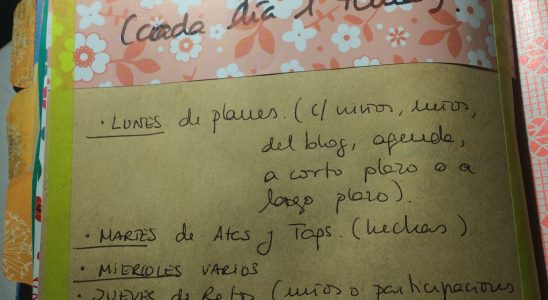 (cada día 1 
· LUNES de planes. (c/ niños, míos,
del blog, agenda,
a corto plazo o a
largo plazo).
· MARTES de Atcs y Taps. (hechas).
· MIERCOLES VARIOS
· JUEVES de Retos (míos o participaciones